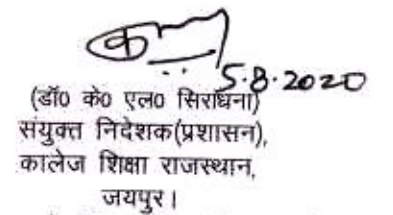 5.8.2020
(डॉ0 के0 एल0 सिराधना)
संयुक्त निदेशक(प्रशासन),
कालेज शिक्षा राजस्थान,
जयपुर।